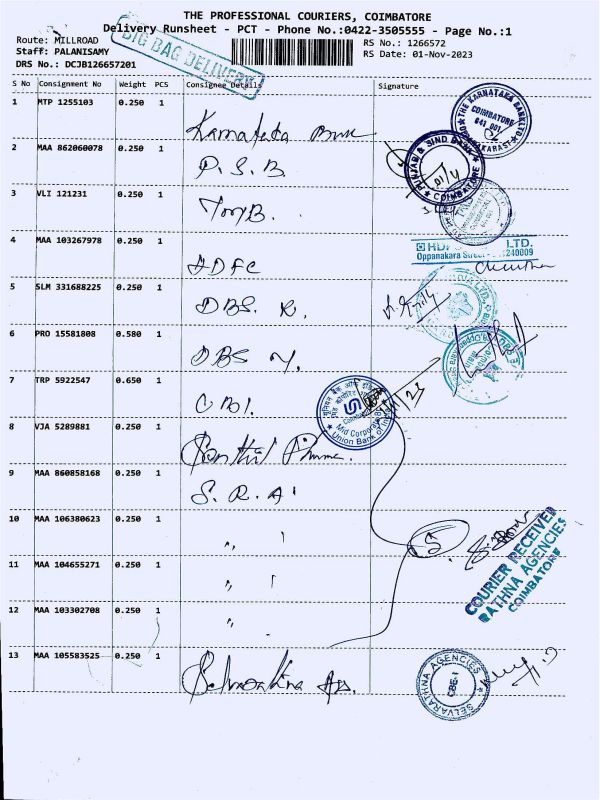 THE PROFESSIONAL COURIERS, COIMBATORE
Delivery Runsheet - PCT - Phone No.:0422-3505555 - Page No.:1
Route: MILLROAD
Staff: PALANISAMY
DRS No.: DCJB126657201
BIG BAG DELIVERY
RS No.: 1266572
RS Date: 01-Nov-2023
S No Consignment No Weight PCS Consignee Details Signature
1 MTP 1255103 0.250 1 Karnataka Bank
THE KARNATAKA BANK LTD
COIMBATORE
641 001
2 MAA 862060078 0.250 1 P.S.B.
PUNJAB & SIND BANK
COIMBATORE
3 VLI 121231 0.250 1 TMB.
4 MAA 103267978 0.250 1 HDFC
HDFC LTD.
Oppanakara Street
5 SLM 331688225 0.250 1 DBS. R.
6 PRO 15581808 0.580 1 DBS M.
7 TRP 5922547 0.650 1 UBI.
Mid Corporate
Union Bank of India
8 VJA 5289881 0.250 1
9 MAA 860858168 0.250 1 S.R.A
10 MAA 106380623 0.250 1 "
5.
COURIER RECEIVED
RATHNA AGENCIES
COIMBATORE
11 MAA 104655271 0.250 1 "
12 MAA 103302708 0.250 1 "
13 MAA 105583525 0.250 1 Selvarathna
SELVARATHNA AGENCIES
CBE-1